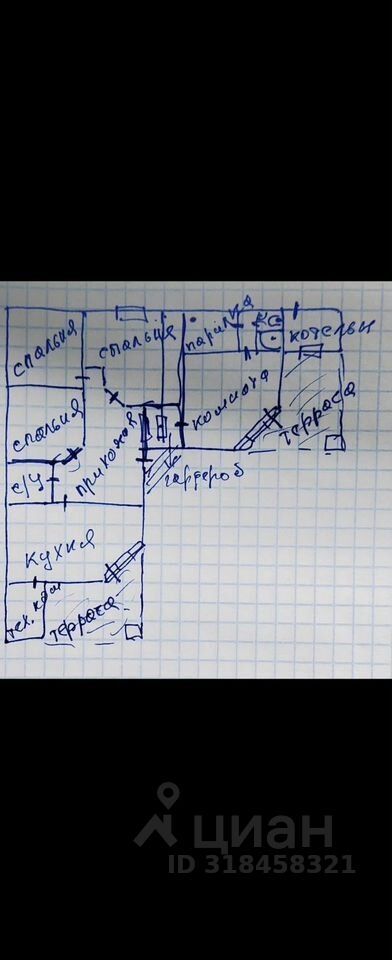 спальня
спальня
парилка
котельн
спальня
комната
терраса
с/у
прихожая
гардероб
кухня
тех. ком
терраса
циан
ID 318458321